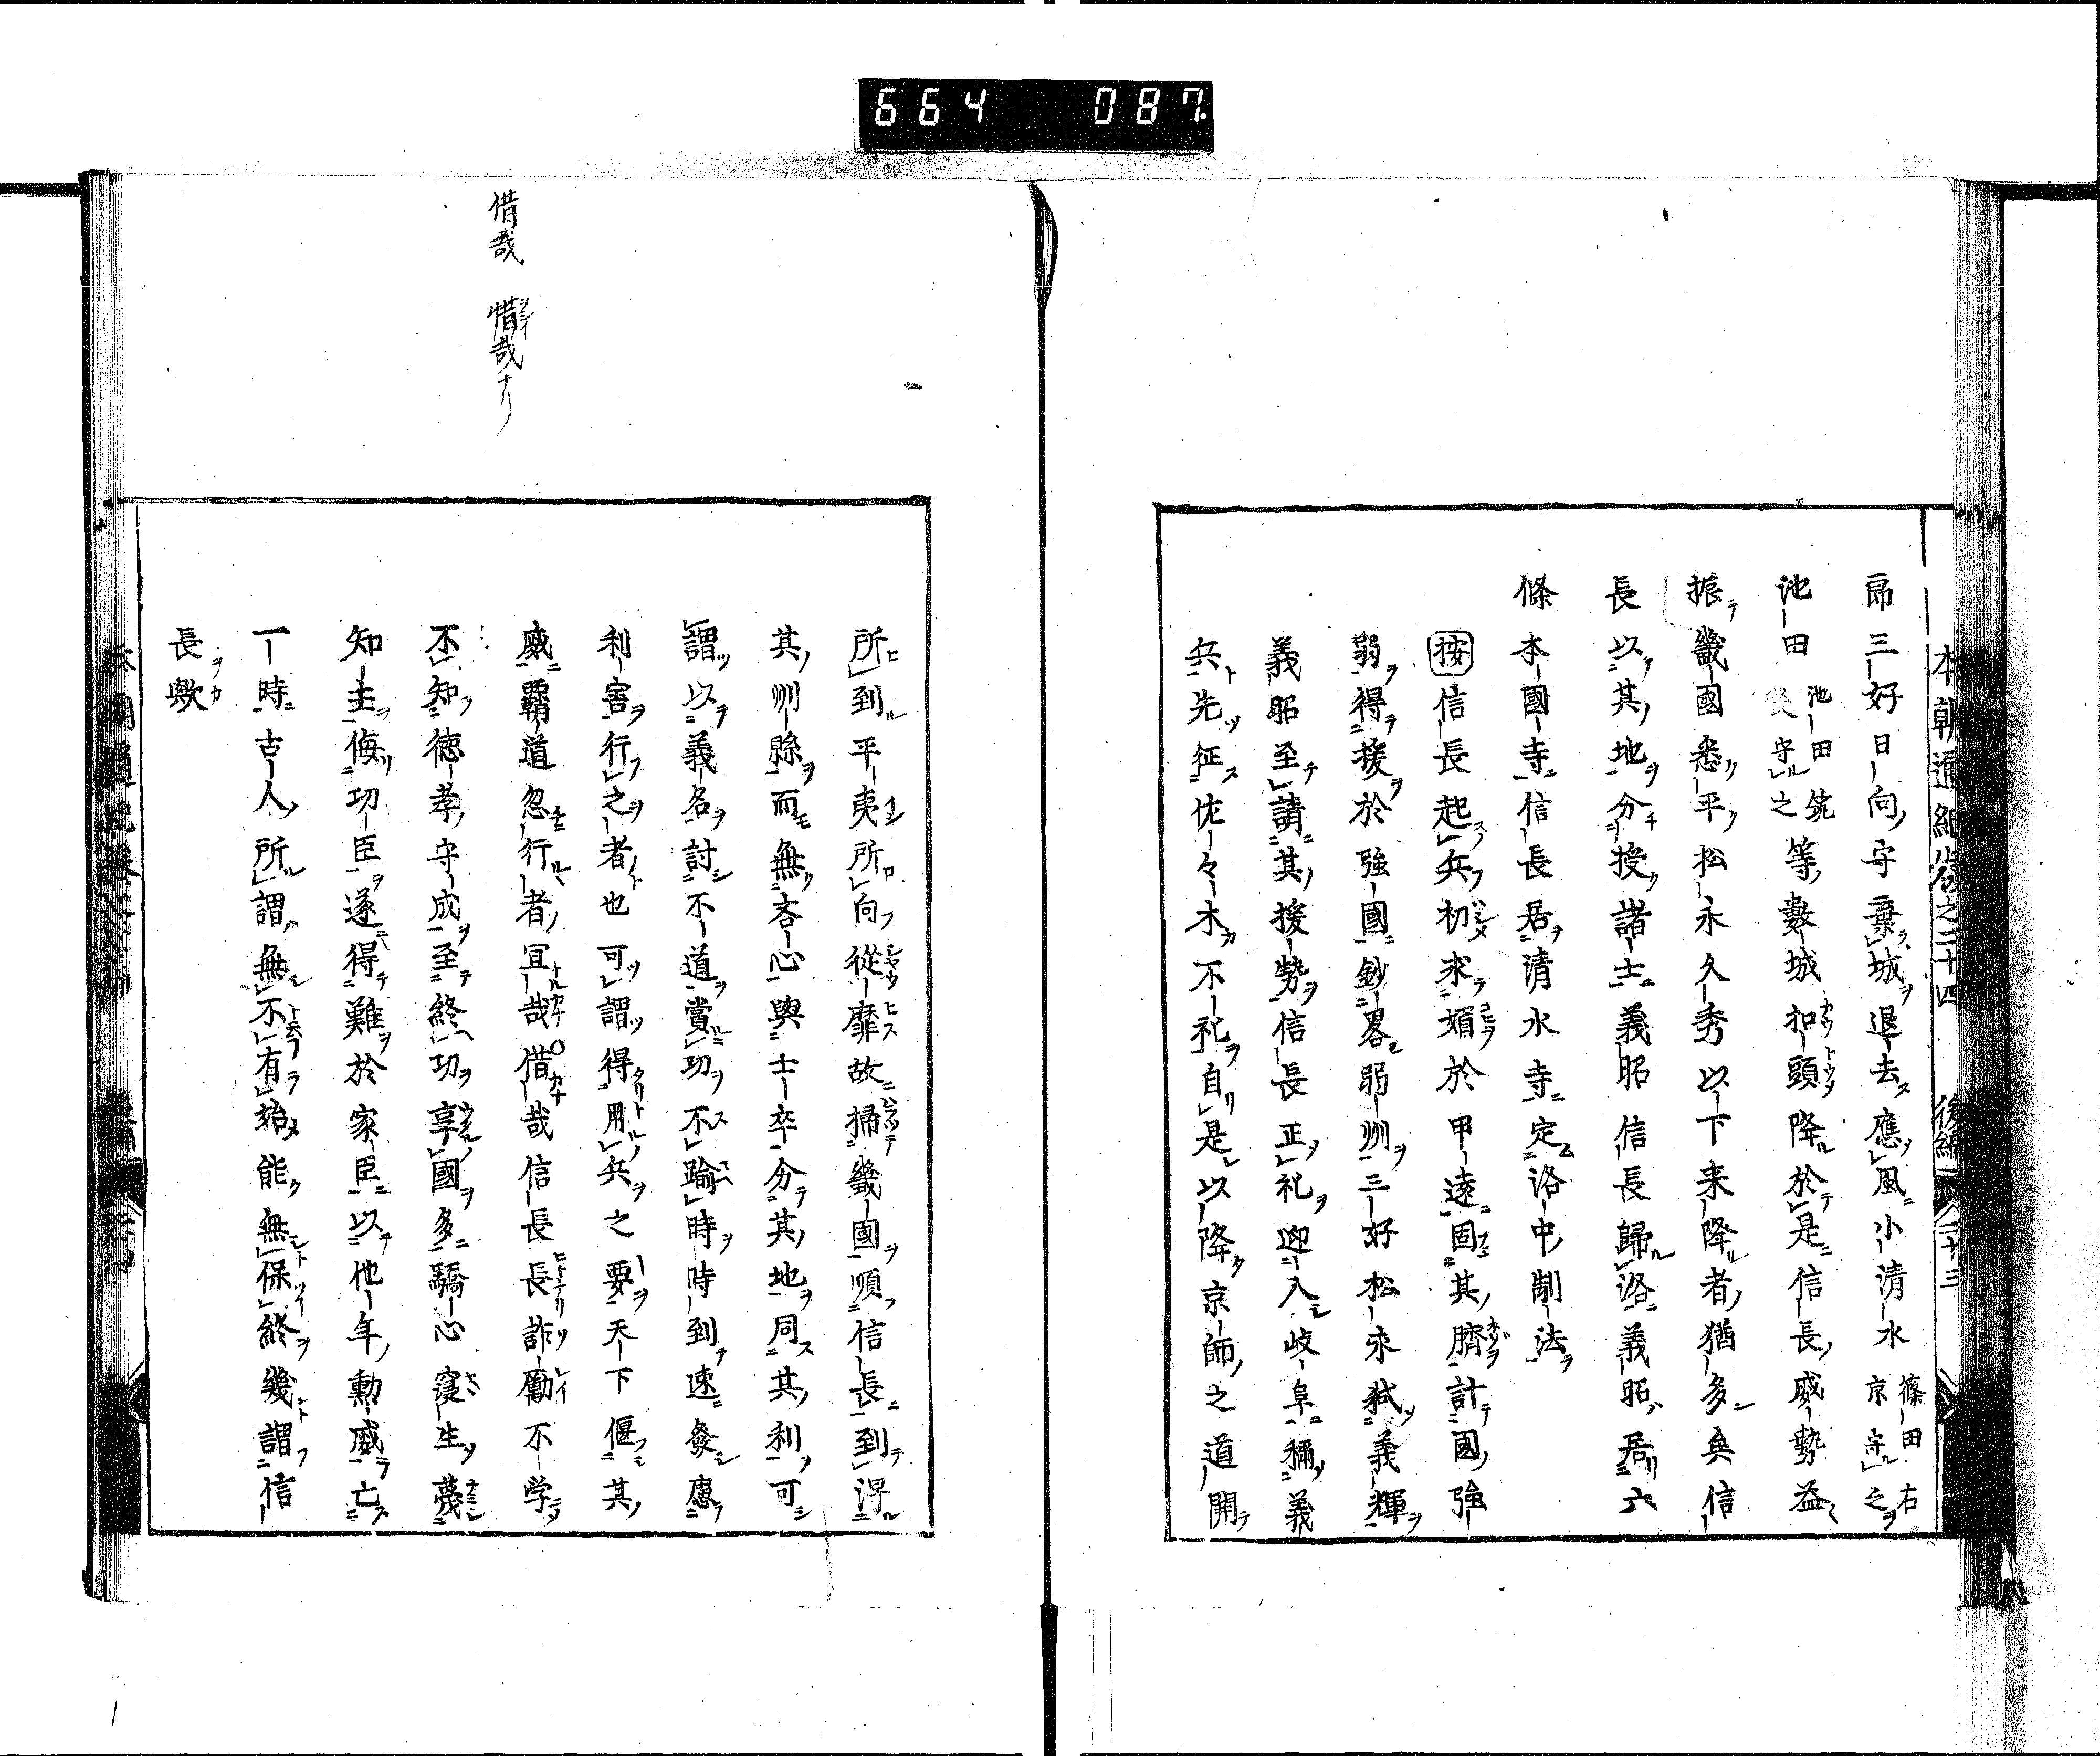 664 087
本朝通紀卷之二十四 後編 二十三
帰三好日向守棄城退去應風小清水 篠田右京守之
池田 池田筑後守之 等數城扣頭降於是信長威勢益
振畿國悉平松永久秀以下来降者猶多矣信
長以其地分授諸士義昭信長歸洛義昭居六
條本國寺信長居清水寺定洛中制法
按信長起兵初求婚於甲遠固其臍計國強
弱得援於強國鈔畧弱州三好松永弑義輝
義昭至請其援勢信長正礼迎入岐阜稱義
兵先征佐々木不礼自是以降京師之道開
所到平夷所向從靡故掃畿國順信長到得
其州縣而無吝心與士卒分其地同其利可
謂以義名討不道賞功不踰時時到速發慮
利害行之者也可謂得用兵之要天下偃其
威覇道忽行者宜哉借哉信長長詐勵不学
不知徳孝守成至終功享國多驕心寖生蔑
知主侮功臣遂得難於家臣以他年勳威亡
一時古人所謂無不有始能無保終幾謂信
長歟
借哉 惜哉ナリ